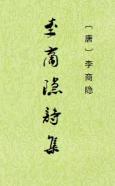 李商隐诗集
〔唐〕李商隐